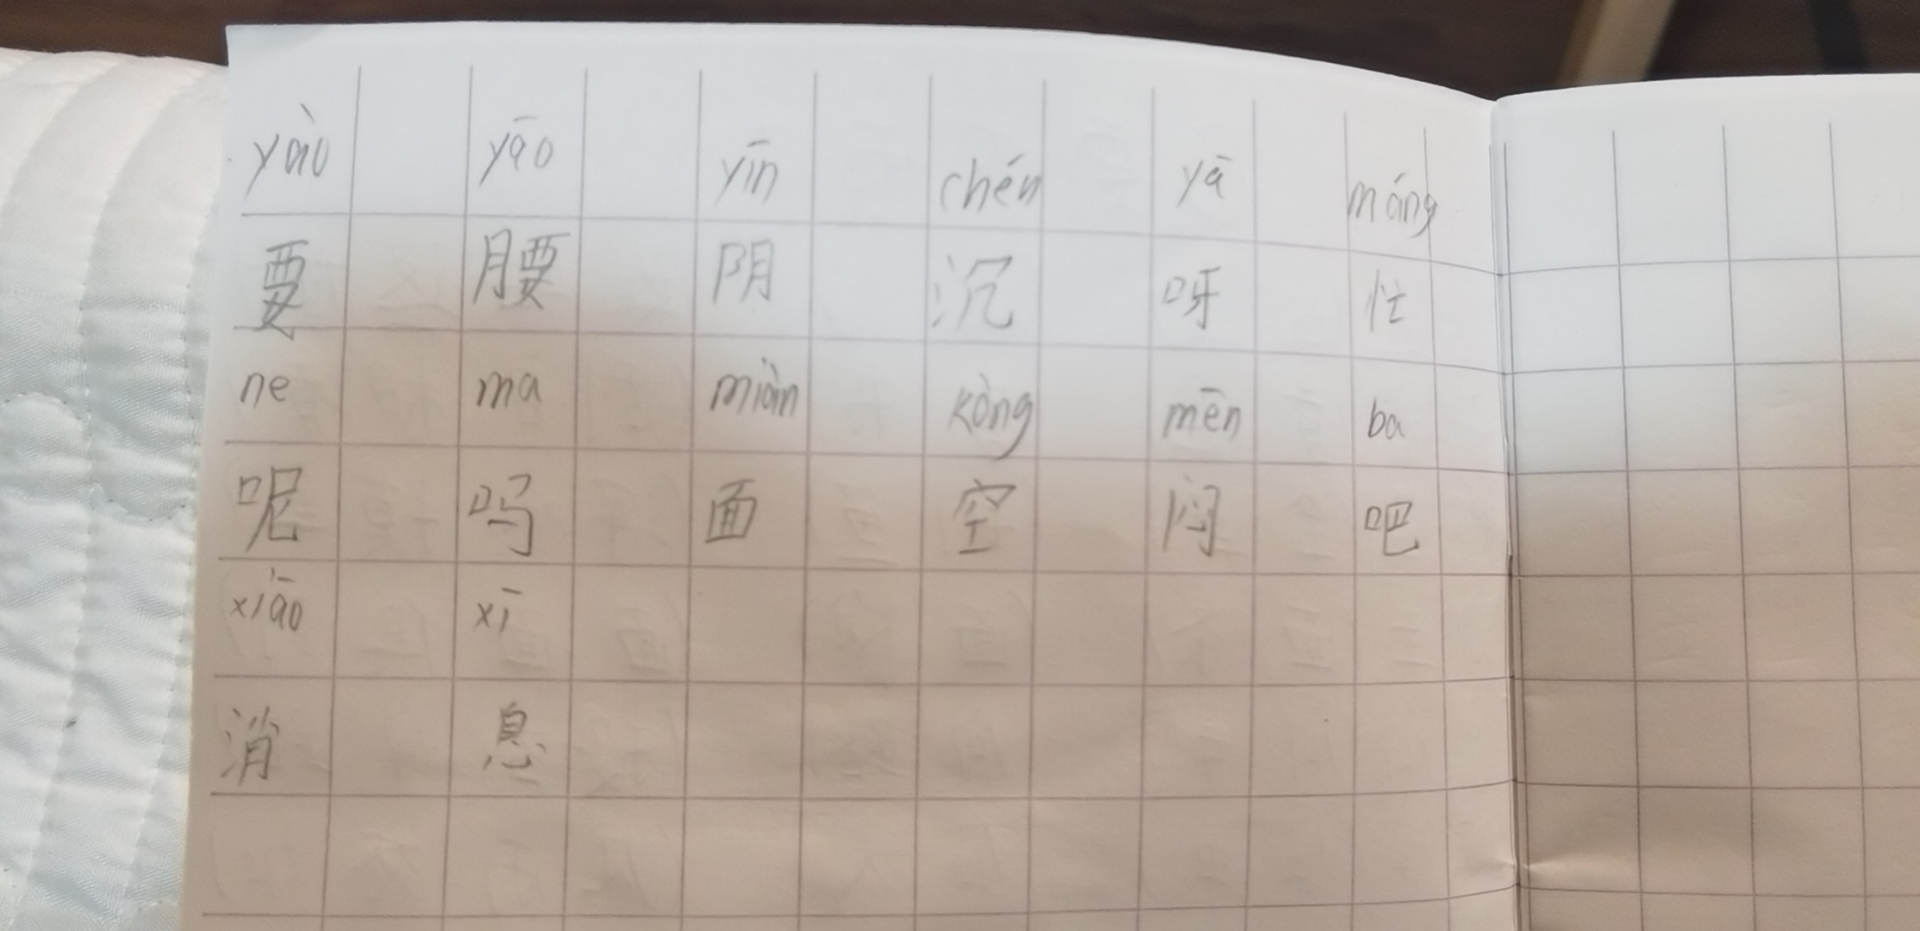 yào yāo yīn chén yā máng
要 腰 阴 沉 呀 忙
ne ma miàn kòng mēn ba
呢 吗 面 空 闷 吧
xiāo xī
消 息